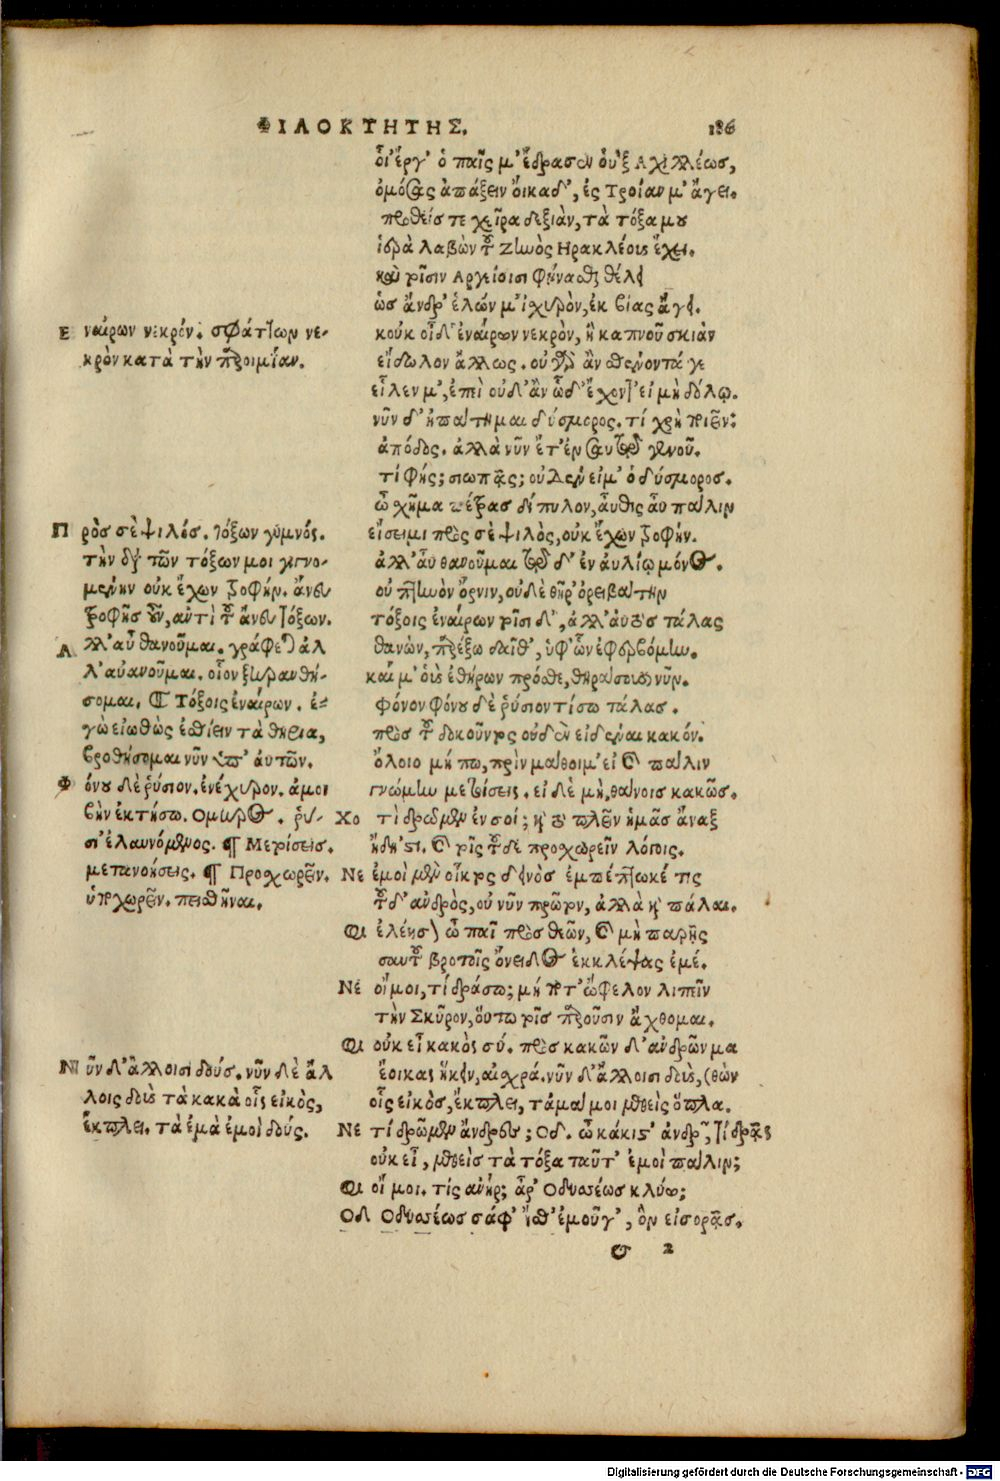 ΦΙΛΟΚΤΗΤΗΣ.
186
οἷ' ἔργ' ὁ παῖς μ' ἔδρασεν οὑξ Ἀχιλλέως,
ὀμόσας ἀπάξειν οἴκαδ', ἐς Τροίαν μ' ἄγει.
προθείς τε χεῖρα δεξιὰν, τὰ τόξα μου
ἱερὰ λαβὼν τοῦ Ζηνὸς Ηρακλέους ἔχει.
καὶ τοῖσιν Αργείοισι φήνασθαι θέλει
ὡς ἄνδρ' ἑλών μ' ἰσχυρὸν, ἐκ βίας ἄγει.
κοὐκ οἶδ' ἐναίρων νεκρὸν, ἢ καπνοῦ σκιὰν
εἴδωλον ἄλλως. οὐ γὰρ ἂν σθένοντά γε
εἷλεν μ', ἐπεὶ οὐδ' ἂν ὧδ' ἔχοντ' εἰ μὴ δόλῳ.
νῦν δ' ἠπάτημαι δύσμορος. τί χρὴ ποιεῖν;
ἀπόδος. ἀλλὰ νῦν ἔτ' ἐν σαυτῷ γενοῦ.
τί φής; σιωπᾷς; οὐδέν εἰμ' ὁ δύσμορος.
ὦ χῆμα πέτρας δίπυλον, αὖθις αὖ πάλιν
εἴσειμι πρὸς σὲ ψιλὸς, οὐκ ἔχων τροφήν.
ἀλλ' αὖ θανοῦμαι τῷδ' ἐν αὐλίῳ μόνος.
οὐ πτηνὸν ὄρνιν, οὐδὲ θῆρ' ὀρειβάτην
τόξοις ἐναίρων τοῖσδ', ἀλλ' αὐτὸς τάλας
θανὼν, παρέξω δαῖθ', ὑφ' ὧν ἐφερβόμην.
καί μ' οὓς ἐθήρων πρόσθε, θηράσουσι νῦν.
φόνον φόνου δὲ ῥύσιον τίσω τάλας.
πρὸς τοῦ δοκοῦντος οὐδὲν εἰδέναι κακόν.
ὄλοιο μή πω, πρὶν μάθοιμ' εἰ καὶ πάλιν
γνώμην μετοίσεις. εἰ δὲ μὴ, θάνοις κακῶς.
Χο τί δρῶμεν ἐν σοί; καὶ τὸ πλεῖν ἡμᾶς ἄναξ
ἤδη 'στι. καὶ τοῖς τοῦδε προχωρεῖν λόγοις.
Νε ἐμοὶ μὲν οἶκτος δεινὸς ἐμπέπτωκέ τις
τοῦδ' ἀνδρὸς, οὐ νῦν πρῶτον, ἀλλὰ καὶ πάλαι.
Φι ἐλέησον ὦ παῖ πρὸς θεῶν, καὶ μὴ παρῇς
σαυτοῦ βροτοῖς ὄνειδος ἐκκλέψας ἐμέ.
Νε οἴμοι, τί δράσω; μή ποτ' ὤφελον λιπεῖν
τὴν Σκῦρον, οὕτω τοῖς παροῦσιν ἄχθομαι.
Φι οὐκ εἶ κακὸς σύ. πρὸς κακῶν δ' ἀνδρῶν μα
ἔοικας ἥκειν, αἰσχρά. νῦν δ' ἄλλοισι δοὺς, (θὼν
οἷς εἰκὸς, ἔκπλει, τἀμά μοι μεθεὶς ὅπλα.
Νε τί δρῶμεν ἄνδρες; Οδ. ὦ κάκιστ' ἀνδρῶν, τί δρᾷς
οὐκ εἶ, μεθεὶς τὰ τόξα ταῦτ' ἐμοὶ πάλιν;
Φι οἴ μοι. τίς ἁνήρ; ἆρ' Οδυσσέως κλύω;
Οδ Οδυσσέως σάφ' ἴσθ' ἐμοῦγ', ὃν εἰσορᾷς.
Ε ναίρων νεκρόν. σφάττων νε-
κρὸν κατὰ τὴν παροιμίαν.
Π ρὸς σὲ ψιλός. τόξων γυμνός.
τὴν διὰ τῶν τόξων μοι γιγνο-
μένην οὐκ ἔχων τροφήν. ἄνευ
τροφῆς οὖν, αὐτὶ τοῦ ἄνευ τόξων.
Α λλ' αὖ θανοῦμαι. γράφεται ἀλ
λ' αὐανοῦμαι. οἷον ξηρανθή-
σομαι. ¶ Τόξοις ἐναίρων. ἐ-
γὼ εἰωθὼς ἐσθίειν τὰ θηρία,
βρωθήσομαι νῦν ὑπ' αὐτῶν.
Φ όνου δὲ ῥύσιον. ἐνέχυρον. ἀμοι
βὴν ἐκτήσω. Ομηρος. ῥύ-
σι' ἐλαυνόμενος. ¶ Μετοίσεις.
μετανοήσεις. ¶ Προχωρεῖν.
ὑποχωρεῖν. πεισθῆναι.
Ν ῦν δ' ἄλλοισι δούς. νῦν δὲ ἄλ
λοις δοὺς τὰ κακὰ οἷς εἰκὸς,
ἔκπλει. τὰ ἐμὰ ἐμοὶ δούς.
2
Digitalisierung gefördert durch die Deutsche Forschungsgemeinschaft - DFG